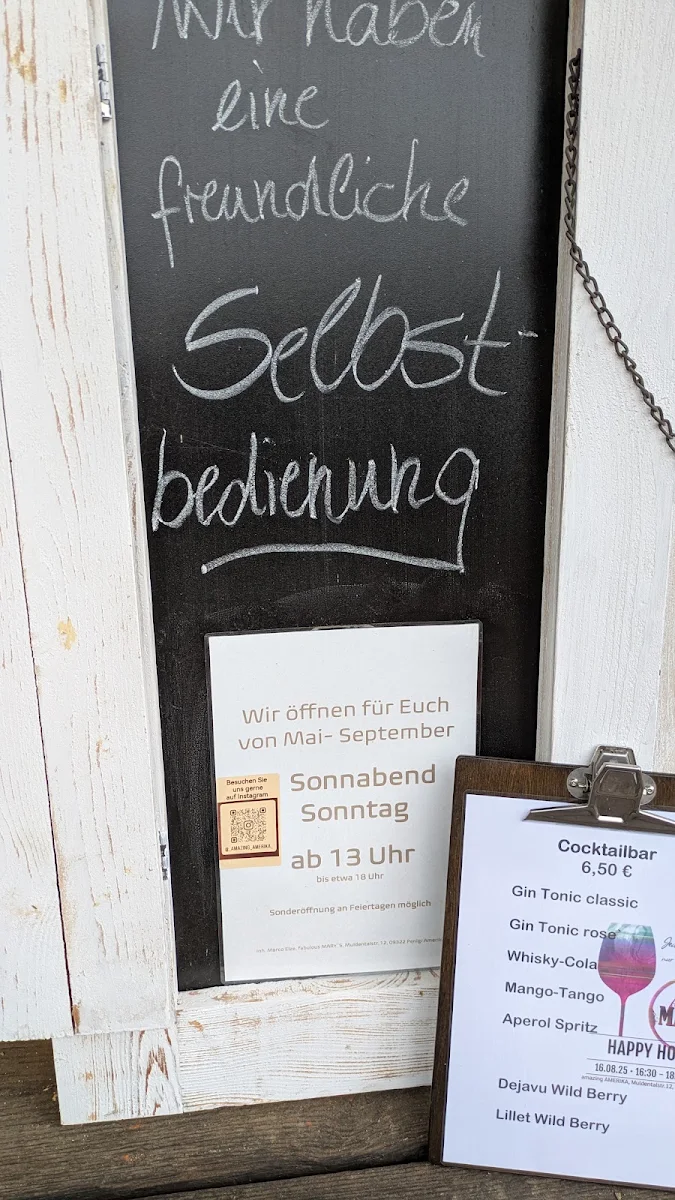 Wir haben
eine
freundliche
Selbst-
bedienung
Wir öffnen für Euch
von Mai- September
Besuchen Sie
uns gerne
auf Instagram
@_AMAZING_AMERIKA_
Sonnabend
Sonntag
ab 13 Uhr
bis etwa 18 Uhr
Sonderöffnung an Feiertagen möglich
Cocktailbar
6,50 €
Gin Tonic classic
Gin Tonic rose
Whisky-Cola
Mango-Tango
Aperol Spritz
HAPPY HO
16.08.25 • 16:30 - 18
amazing AMERIKA, Muldentalstr. 12,
Dejavu Wild Berry
Lillet Wild Berry